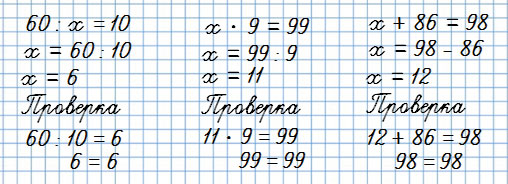 60 : x = 10
x = 60 : 10
x = 6
Проверка
60 : 10 = 6
6 = 6
x · 9 = 99
x = 99 : 9
x = 11
Проверка
11 · 9 = 99
99 = 99
x + 86 = 98
x = 98 - 86
x = 12
Проверка
12 + 86 = 98
98 = 98